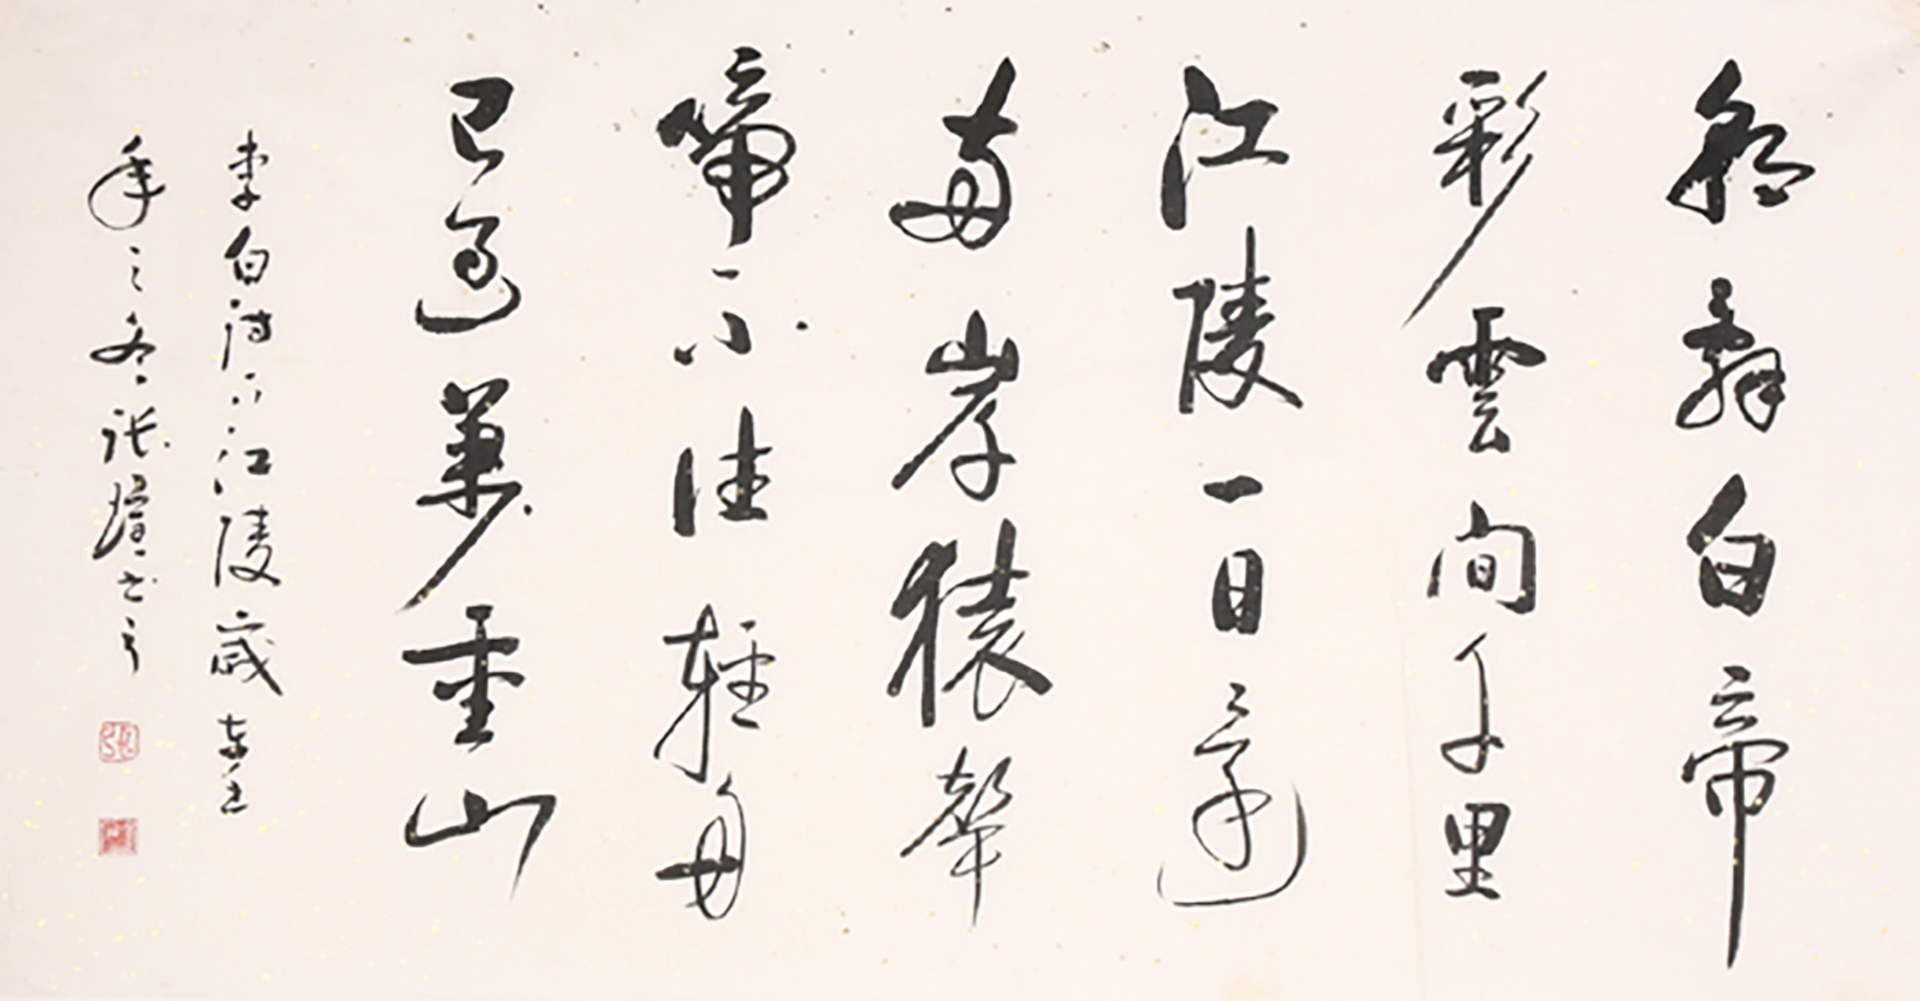 朝辭白帝
彩雲間千里
江陵一日還
兩岸猿聲
啼不住輕舟
已過萬重山
李白詩下江陵歲在
年之冬張